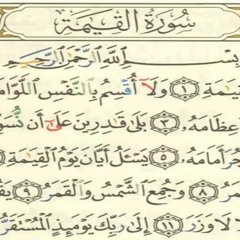 سُورَةُ ٱلْقِيَٰمَةِ
بِسْمِ ٱللَّهِ ٱلرَّحْمَٰنِ ٱلرَّحِيمِ
قِيَٰمَةِ ١ وَلَآ أُقْسِمُ بِٱلنَّفْسِ ٱللَّوَّامَ
عِظَامَهُۥ ٣ بَلَىٰ قَٰدِرِينَ عَلَىٰٓ أَن نُّسَوِّ
جُرَ أَمَامَهُۥ ٥ يَسْـَٔلُ أَيَّانَ يَوْمُ ٱلْقِيَٰمَةِ ٦
مَرُ ٨ وَجُمِعَ ٱلشَّمْسُ وَٱلْقَمَرُ ٩ يَقُ
لَا وَزَرَ ١١ إِلَىٰ رَبِّكَ يَوْمَئِذٍ ٱلْمُسْتَقَرُّ